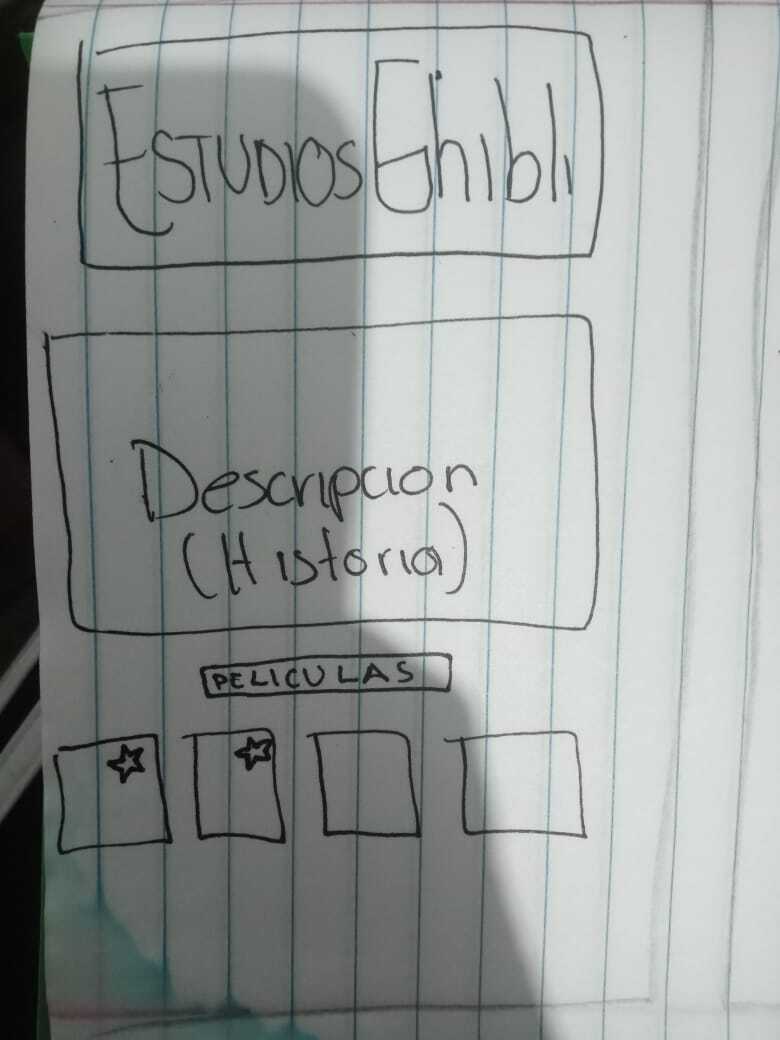 ESTUDIOS Ghibli
Descripcion
(Historia)
PELICULAS